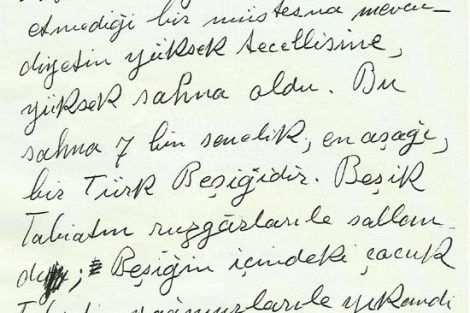 etmediği bir müstesna mevcu-
diyetin yüksek tecellisine,
yüksek sahna oldu. Bu
sahna 7 bin senelik, en aşağı,
bir Türk Beşiğidir. Beşik
Tabiatın ruzgârlarıle sallan-
dı; Beşiğin içindeki çocuk
yağmurlarıle yıkandı